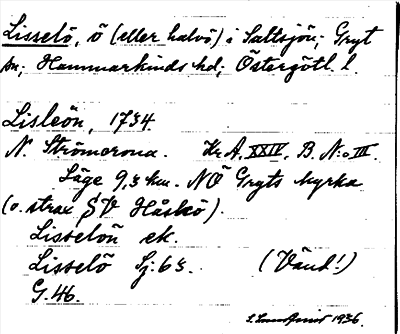 Lisselö, ö (eller halvö) i Saltsjön; Gryt
sn; Hammarkinds hd; Östergötl. l.
Lisleön, 1734.
N. Strömcrona. Kr A, XXIV, B. N:o III.
Läge 9,3 km. NÖ Gryts kyrka
(o. strax SV Håskö).
Lisselön ek.
Lisselö Sj. 63. (Vänd!)
G. 46.
1936.